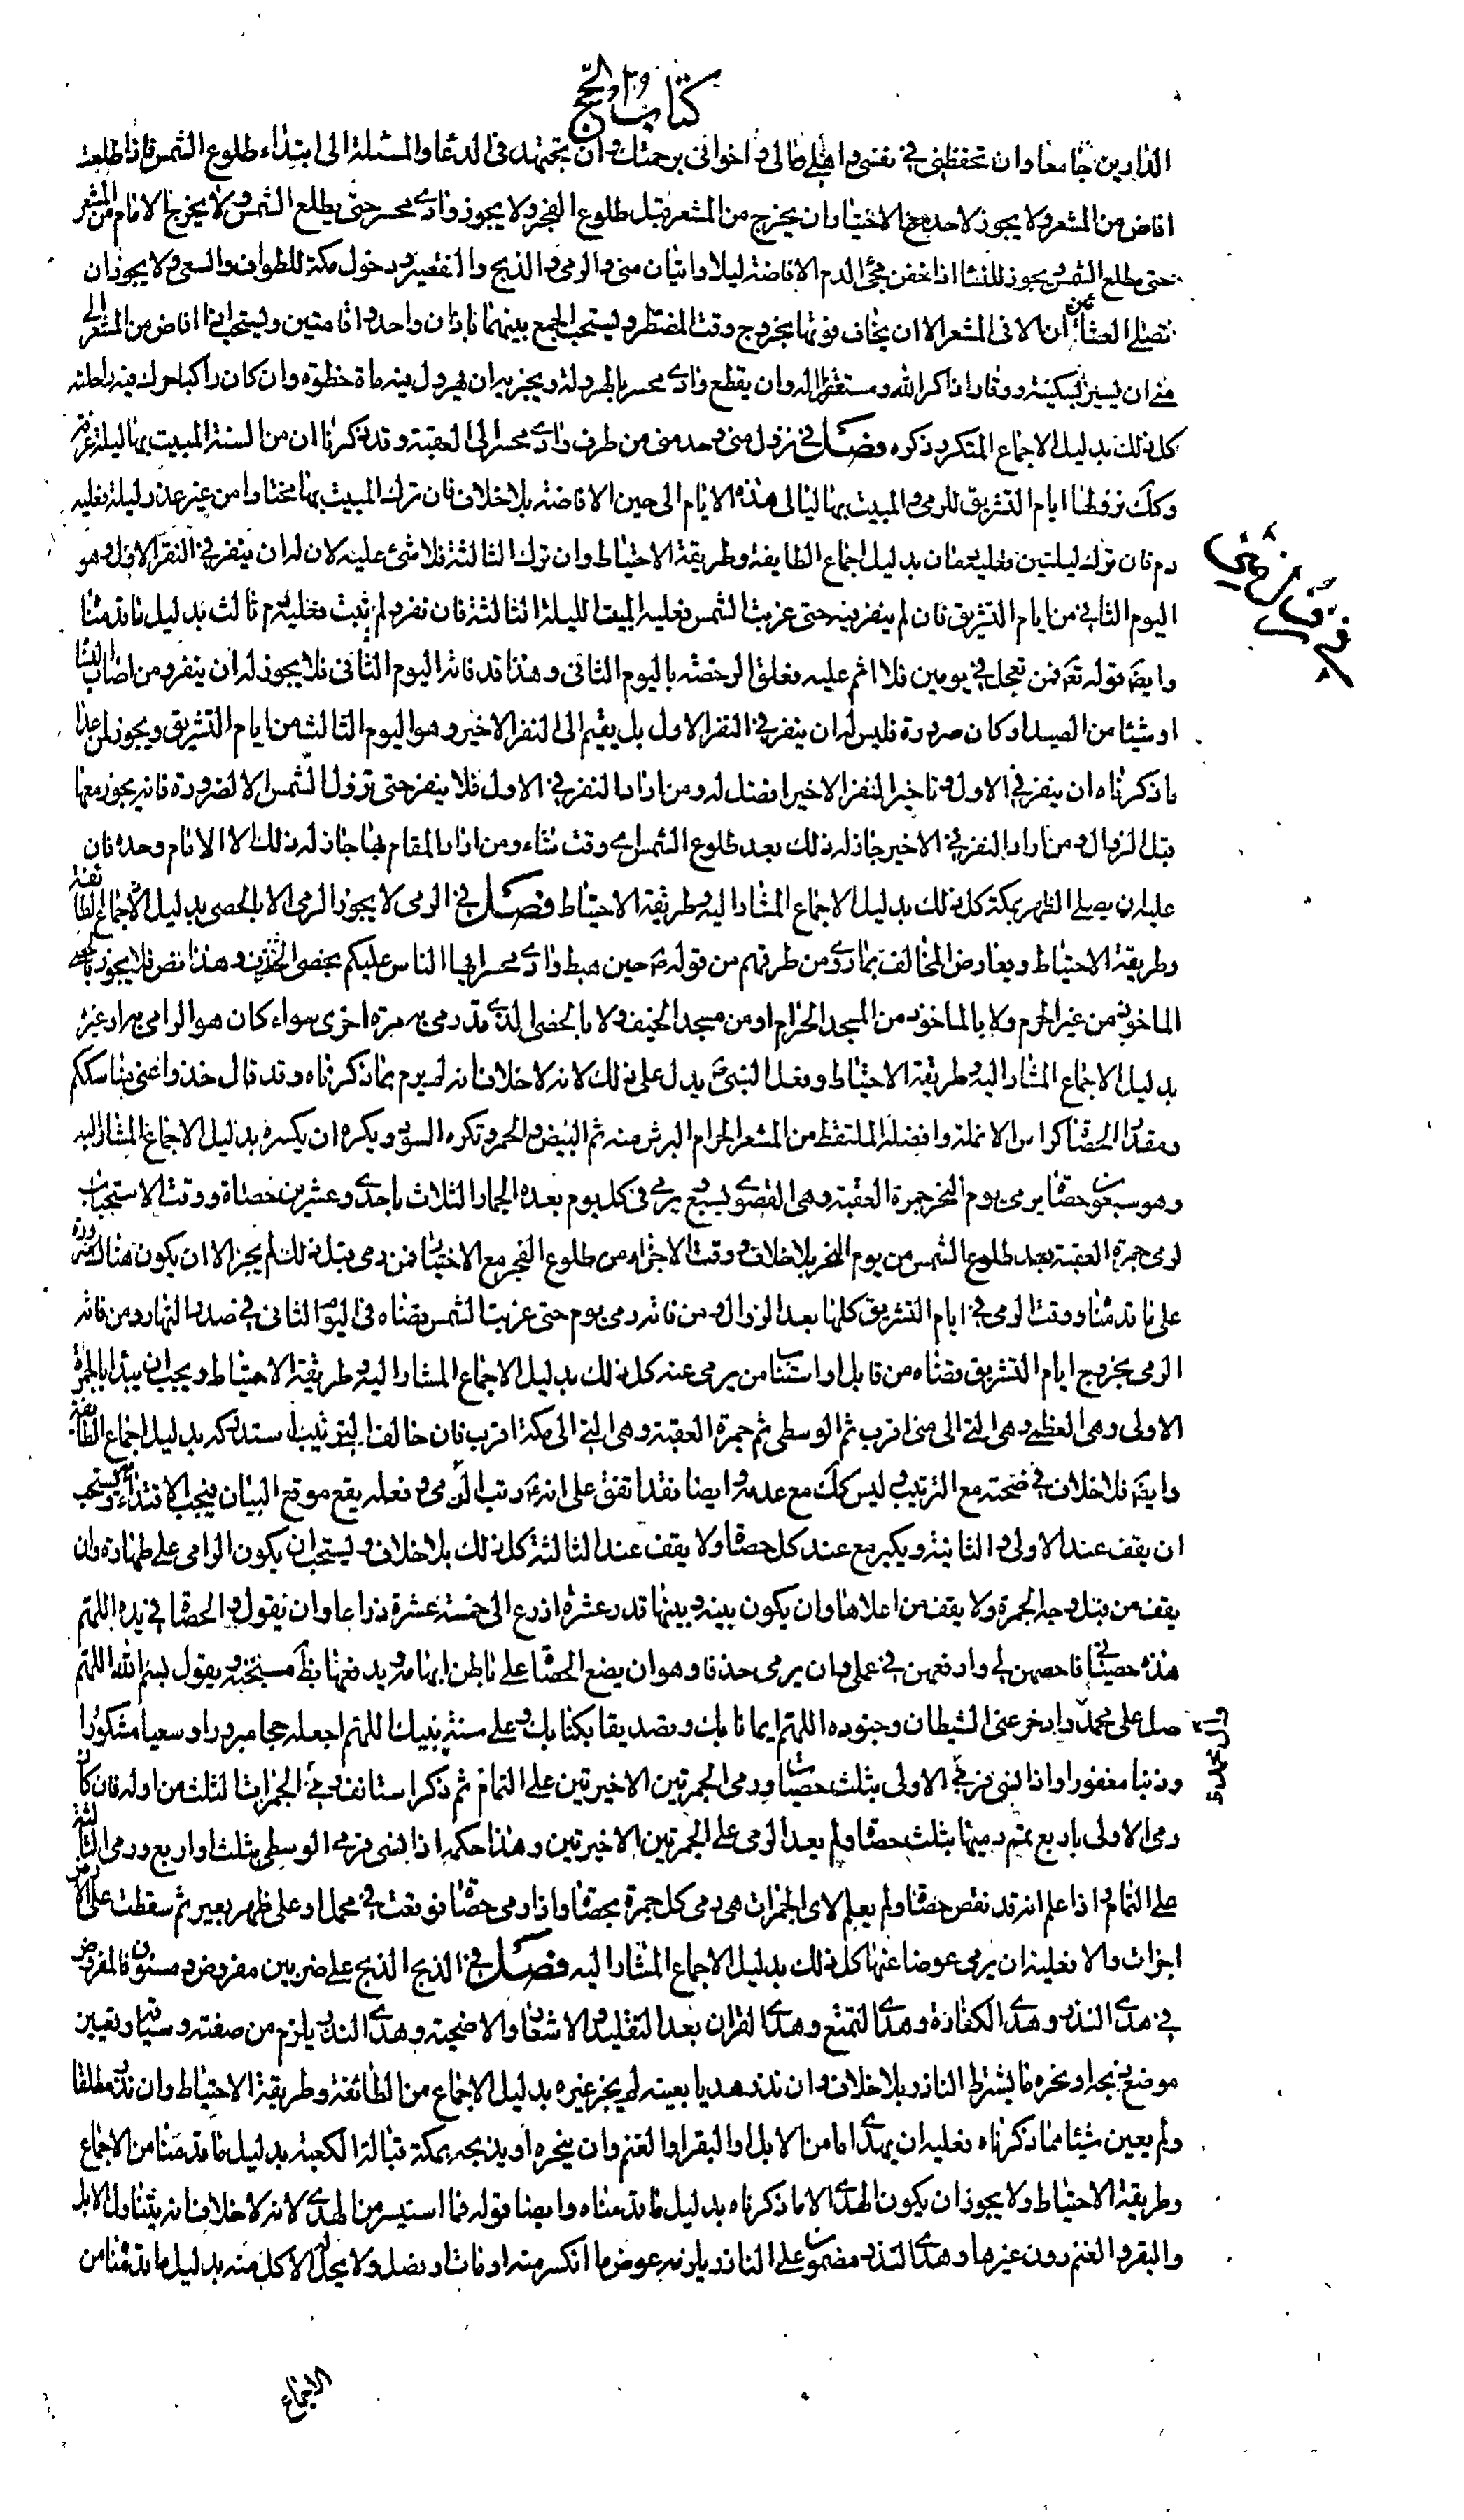 كتاب الحج
الدارين جامعا وان تحفظني في نفسي واهلي ومالي واخواني برحمتك وان يجتهد في الدعا والمسئلة الى ابتداء طلوع الشمس فاذا طلعت
افاض من المشعر ولا يجوز لاحد مع الاختيار ان يخرج من المشعر قبل طلوع الفجر ولا يجوز وادي محسر حتى يطلع الشمس ولا يخرج الامام من المشعر
حتى تطلع الشمس ويجوز للنساء اذا خفن مجئ الدم الافاضة ليلا واتيان منى والرمي والذبح والتقصير ودخول مكة للطواف والسعي ولا يجوز ان
تصلى العشاءان الا في المشعر الا ان يخاف فوتها بخروج وقت المضطر ويستحب الجمع بينهما باذان واحد واقامتين ويستحب اذا افاض من المشعر الى
منى ان يسير بسكينة ووقار ذاكرا لله ومستغفرا له وان يقطع وادي محسر بالهرولة ويجزيه ان يهرول فيه ماة خطوة وان كان راكبا حرك فيه راحلته
كل ذلك بدليل الاجماع المتكرر ذكره فصل في نزول منى وحد منى من طرف وادي محسر الى العقبة وقد ذكرنا ان من السنة المبيت بها ليلة عرفة
وكك نزولها ايام التشريق للرمي والمبيت بها ليالي هذه الايام الى حين الافاضة بلا خلاف فان ترك المبيت بها مختارا من غير عذر ليلة فعليه
دم فان ترك ليلتين فعليه دمان بدليل اجماع الطايفة وطريقة الاحتياط وان ترك الثالثة فلا شئ عليه لان له ان ينفر في النفر الاول وهو
اليوم الثاني من ايام التشريق فان لم ينفر فيه حتى غربت الشمس فعليه المبيت الليلة الثالثة فان نفر ولم يبت فعليه دم ثالث بدليل ما قدمنا
وايضا قوله تع فمن تعجل في يومين فلا اثم عليه فعلق الرخصة باليوم الثاني وهذا قد فاته اليوم الثاني فلا يجوز له ان ينفر ومن اصاب النسا
او شيئا من الصيد او كان صرورة فليس له ان ينفر في النفر الاول بل يقيم الى النفر الاخير وهو اليوم الثالث من ايام التشريق ويجوز لمن عدا
ما ذكرناه ان ينفر في الاول وتاخير النفر الاخير افضل له ومن اراد النفر في الاول فلا ينفر حتى تزول الشمس الا لضرورة فانه يجوز معها
قبل الزوال ومن اراد النفر في الاخير جاز له ذلك بعد طلوع الشمس اي وقت شاء ومن اراد المقام بها جاز له ذلك الا الامام وحده فان
عليه ان يصلي الظهر بمكة كل ذلك بدليل الاجماع المشار اليه وطريقة الاحتياط فصل في الرمي لا يجوز الرمي الا بالحصى بدليل الاجماع الطائفة
وطريقة الاحتياط ويعارض المخالف بما روي من طرقهم من قوله ص حين هبط وادي محسر ايها الناس عليكم بحصى الخذف وهذا نص فلا يجوز بالحصى
الماخوذ من غير الحرم ولا بالماخوذ من المسجد الحرام او من مسجد الخيف ولا بالحصى الذي قد رمي به مرة اخرى سواء كان هو الرامي به او غيره
بدليل الاجماع المشار اليه وطريقة الاحتياط وفعل النبي ص يدل على ذلك لانه لا خلاف انه لم يرم بما ذكرناه وقد قال خذوا عني مناسككم
ومقدار الحصاة كراس الانملة وافضله الملتقط من المشعر الحرام البرش منه ثم البيض والحمر وتكره السود ويكره ان يكسره بدليل الاجماع المشار اليه
وهو سبعون حصاة يرمي يوم النحر جمرة العقبة وهي القصوى بسبع ويرمي في كل يوم بعده الجمار الثلاث باحدى وعشرين حصاة ووقت الاستحباب
لرمي جمرة العقبة بعد طلوع الشمس من يوم النحر بلا خلاف ووقت الاجزاء من طلوع الفجر مع الاختيار فمن رمى قبل ذلك لم يجز الا ان يكون هناك ضرورة
على ما قدمناه ووقت الرمي في ايام التشريق كلها بعد الزوال ومن فاته رمي يوم حتى غربت الشمس قضاه في اليوم الثاني في صدر النهار ومن فاته
الرمي بخروج ايام التشريق قضاه من قابل او استناب من يرمي عنه كل ذلك بدليل الاجماع المشار اليه وطريقة الاحتياط ويجب ان يبدا بالجمرة
الاولى وهي العظمى وهي التي الى منى اقرب ثم الوسطى ثم جمرة العقبة وهي التي الى مكة اقرب فان خالف الترتيب استدركه بدليل اجماع الطائفة
وايضا فلا خلاف في صحته مع الترتيب وليس كك مع عدمه وايضا فقد اتفق على انه ع رتب الرمي وفعله يقع موقع البيان فيجب الاقتداء به ويستحب
ان يقف عند الاولى والثانية ويكبر مع عند كل حصاة ولا يقف عند الثالثة كل ذلك بلا خلاف ويستحب ان يكون الرامي على طهارة وان
يقف من قبل وجه الجمرة ولا يقف من اعلاها وان يكون بينه وبينها قدر عشرة اذرع الى خمسة عشرة ذراعا وان يقول والحصاة في يده اللهم
هذه حصياتي فاحصهن لي وارفعهن في عملي وان يرمي حذفا وهو ان يضع الحصاة على باطن ابهامه ويدفعها بظاهر مسبحته ويقول بسم الله اللهم
صل على محمد وادحر عني الشيطان وجنوده اللهم ايمانا بك وتصديقا بكتابك وعلى سنة نبيك اللهم اجعله حجا مبرورا وسعيا مشكورا
وذنبا مغفورا واذا نسي فرمى الاولى بثلث حصيات ورمى الجمرتين الاخيرتين على التمام ثم ذكر استانف رمي الجمرات الثلث من اوله فان كان
رمى الاولى باربع تمم رميها بثلث حصا ولم يعد الرمي على الجمرتين الاخيرتين وهذا حكمه اذا نسي فرمى الوسطى بثلث او اربع ورمى الثالثة
على التمام واذا علم انه قد نقص حصاة ولم يعلم لاي الجمرات هي رمى كل جمرة بحصاة واذا رمى حصاة فوقعت في محمل او على ظهر بعير ثم سقطت على الارض
اجزات والا فعليه ان يرمي عوضا عنها كل ذلك بدليل الاجماع المشار اليه فصل في الذبح الذبح على ضربين مفروض ومسنون فالمفروض
في هدي النذر وهدي الكفارة وهدي التمتع وهدي القران بعد التقليد والاشعار والاضحية وهدي النذر يلزم من صفته وسياقه وتعيين
موضع ذبحه او نحره ما يشترط الناذر بلا خلاف وان نذر هديا بعينه لم يجز غيره بدليل الاجماع من الطائفة وطريقة الاحتياط وان نذر مطلقا
ولم يعين شيئا مما ذكرناه فعليه ان يهدي اما من الابل او البقر او الغنم وان ينحره او يذبحه بمكة قبالة الكعبة بدليل ما قدمنا من الاجماع
وطريقة الاحتياط ولا يجوز ان يكون الهدي الا ما ذكرناه بدليل ما قدمناه وايضا قوله فما استيسر من الهدي لانه لا خلاف انه يتناول الابل
والبقر والغنم دون غيرها وهدي النذر مضمون على الناذر يلزمه عوض ما انكسر منه او مات او ضل ولا يحل الاكل منه بدليل ما قدمنا من
الاجماع